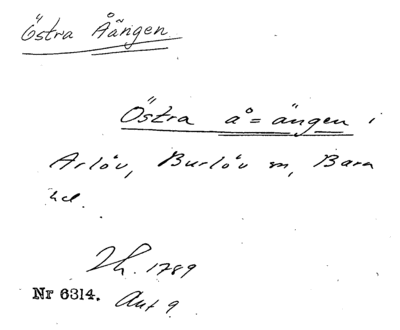 Östra Åängen
Östra å=ängen i
Arlöv, Burlöv sn, Bara
hd.
1789
Nr 6314. Akt 9